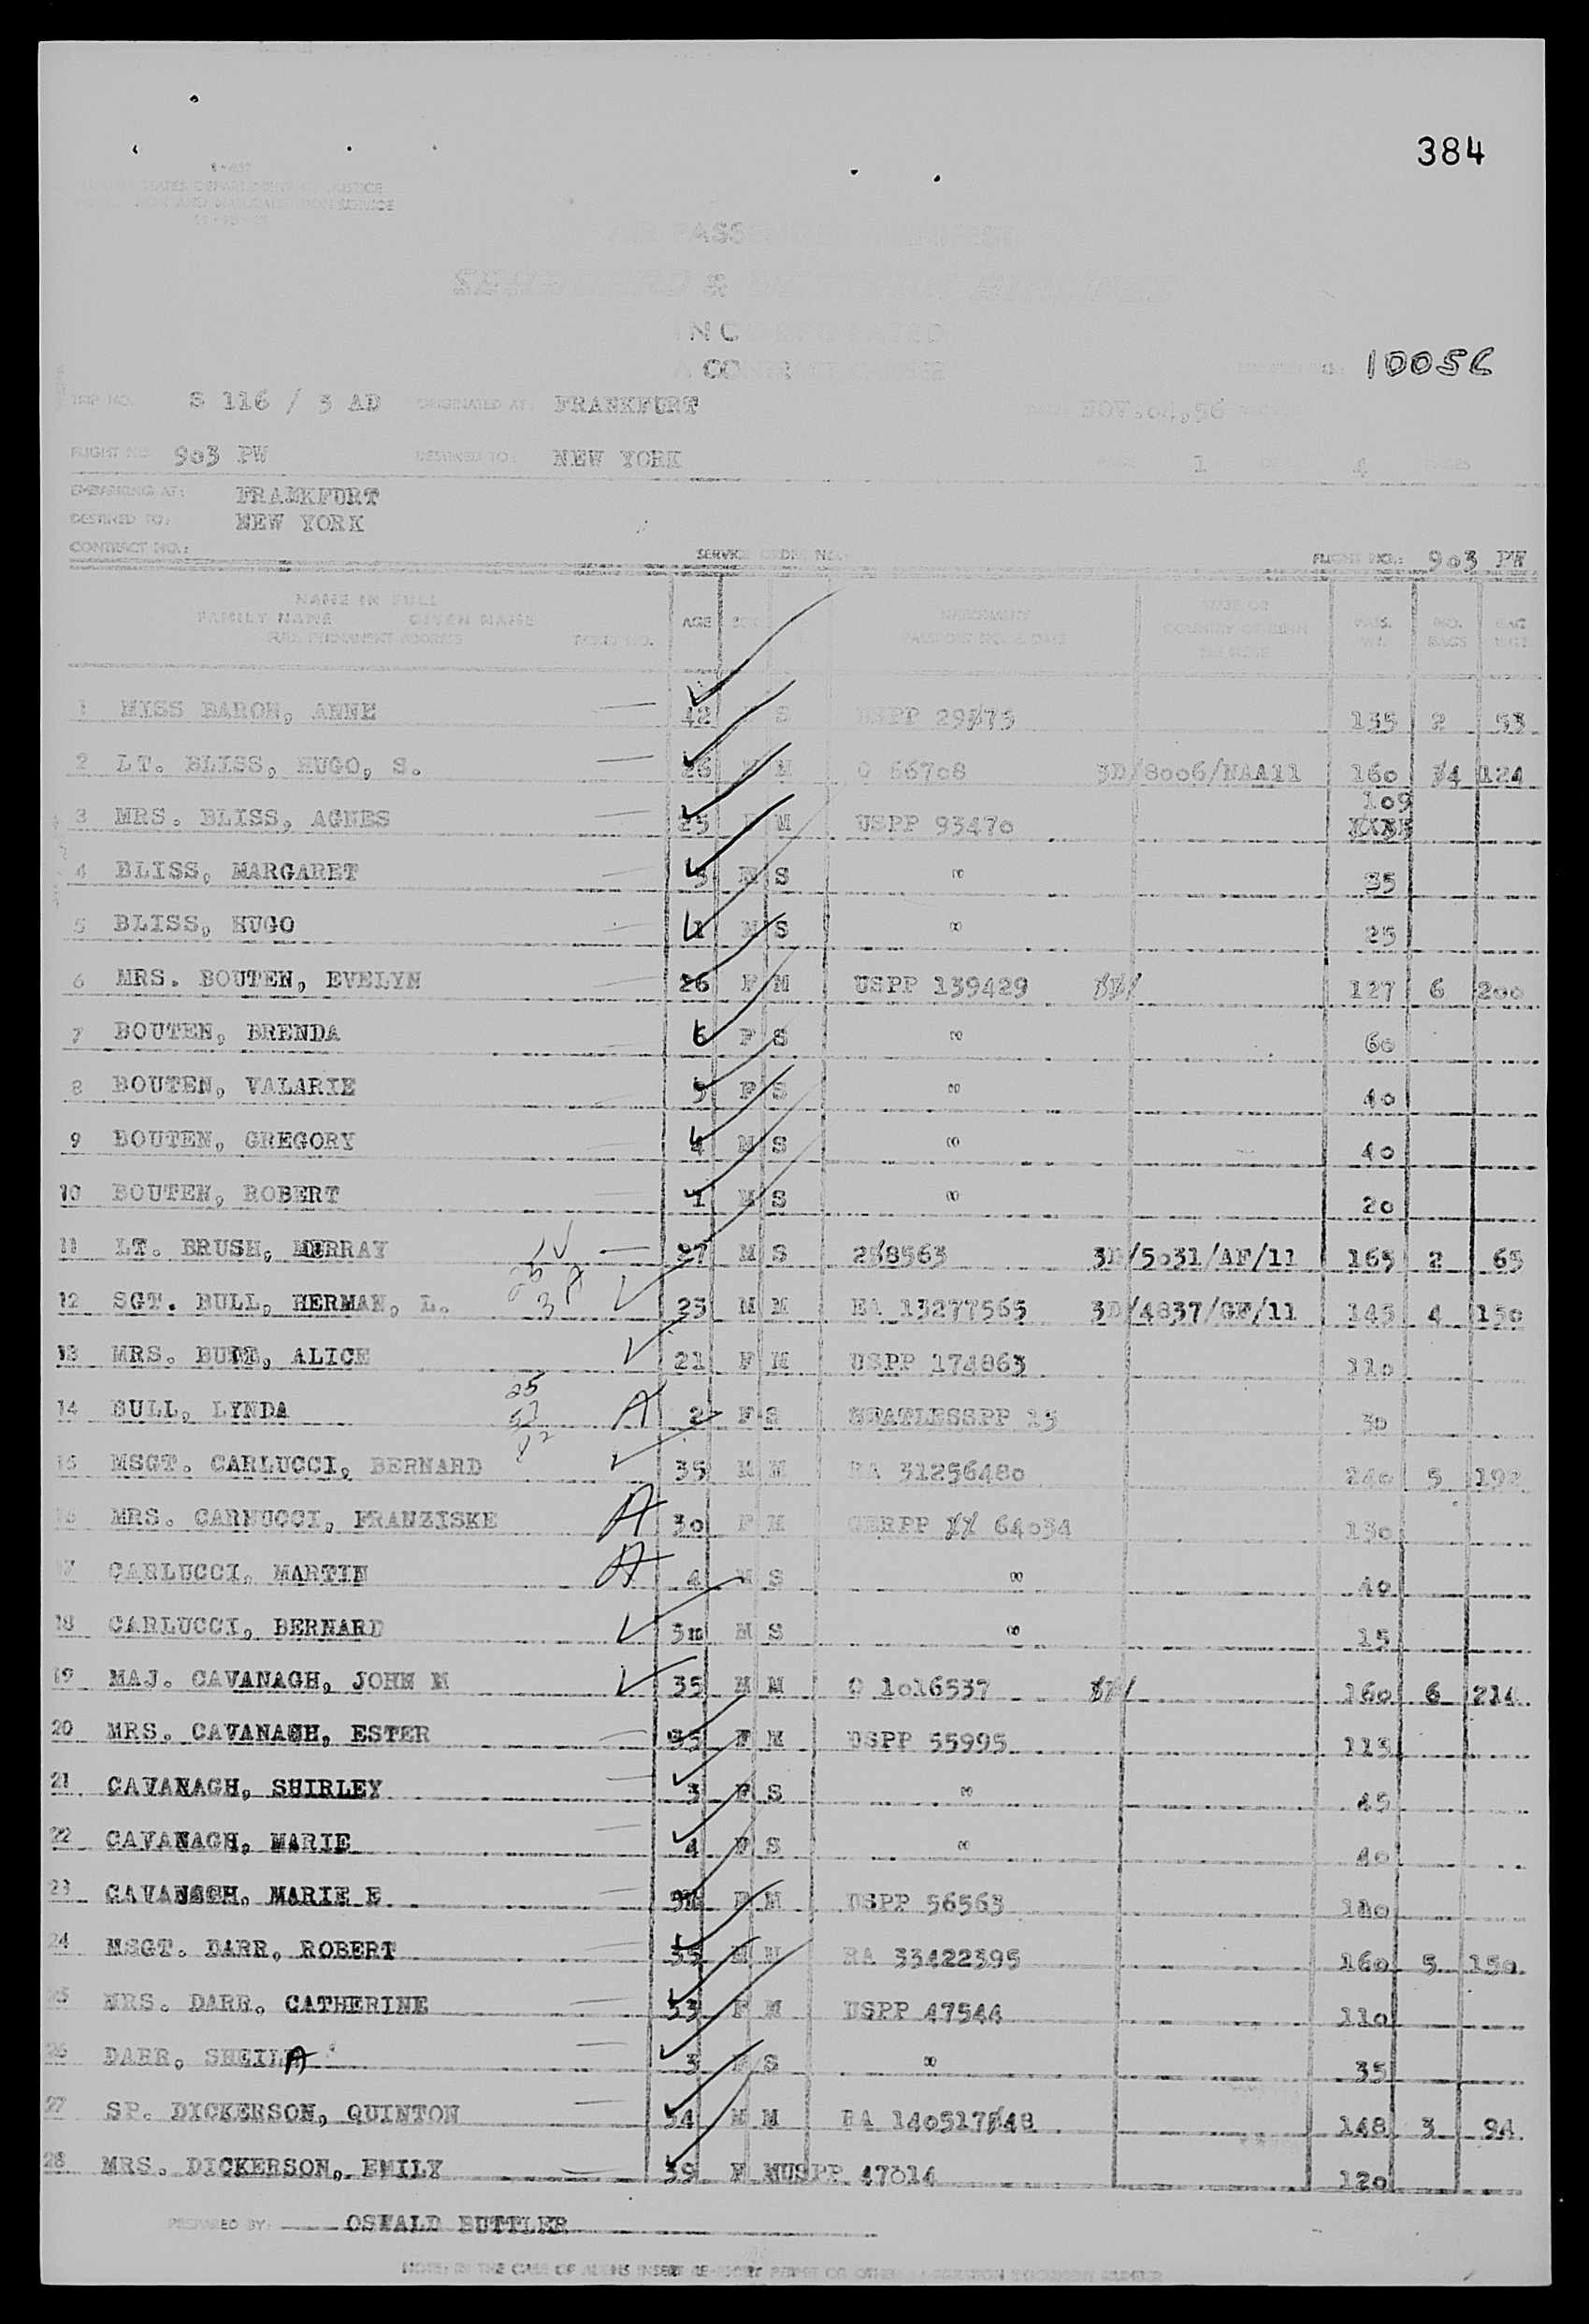 384
UNITED STATES DEPARTMENT OF JUSTICE
IMMIGRATION AND NATURALIZATION SERVICE
AIR PASSENGER MANIFEST
INCORPORATED
A CONTRACT CARRIER
10056
TRIP NO. S 116 / 3 AD ORIGINATED AT: FRANKFURT DATE: NOV.04,56
FLIGHT NO. 903 PW DESTINED TO: NEW YORK PAGE 1 OF 4 PAGES
EMBARKING AT: FRAMKFURT
DESTINED TO: NEW YORK
CONTRACT NO.: SERVICE ORDER NO.: FLIGHT NO.: 903 PW
NAME IN FULL
FAMILY NAME GIVEN NAME AGE SEX NATIONALITY PASS. WT. NO. BAGS BAG WGT.
FULL PERMANENT ADDRESS PASSPORT NO. & DATE COUNTRY OF BIRTH
1 MISS BARON, ANNE 42 S USPP 29873 135 2 53
2 LT. BLISS, HUGO, S. 26 M M O 66708 3D/8006/NAA11 160 4 124
109
3 MRS. BLISS, AGNES 25 F M USPP 93470
4 BLISS, MARGARET 3 M S " 35
5 BLISS, HUGO 1 M S " 25
6 MRS. BOUTEN, EVELYN 26 F M USPP 139429 127 6 200
7 BOUTEN, BRENDA 6 F S " 60
8 BOUTEN, VALARIE 5 F S " 40
9 BOUTEN, GREGORY 4 M S " 40
10 BOUTEN, ROBERT 1 M S " 20
11 LT. BRUSH, MURRAY 27 M S 3D/5031/AF/11 165 2 65
12 SGT. BULL, HERMAN, L. 23 M M RA 13277565 3D/4837/GF/11 145 4 150
13 MRS. BULL, ALICE 21 F M USPP 174863 110
14 BULL, LYNDA 2 F S STATLESSPP 15 30
15 MSGT. CARLUCCI, BERNARD 35 M M RA 31256480 240 5 192
16 MRS. CARNUCCI, FRANZISKE 30 F M GERPP 64034 130
17 CARLUCCI, MARTIN 4 M S " 40
18 CARLUCCI, BERNARD 3m M S " 15
19 MAJ. CAVANAGH, JOHN M 35 M M O 1016537 160 6 214
20 MRS. CAVANAGH, ESTER 35 F M USPP 55995 115
21 CAVANAGH, SHIRLEY 3 F S " 45
22 CAVANAGH, MARIE 4 F S " 40
23 CAVANAGH, MARIE E F M USPP 56563
24 MSGT. DARR, ROBERT 35 M M RA 33422395 160 5 150
25 MRS. DARR, CATHERINE 33 F M USPP 47544 110
26 DARR, SHEILA 3 F S " 35
27 SP. DICKERSON, QUINTON 34 M M 148 3 94
28 MRS. DICKERSON, EMILY 39 F M USPP 47014 120
PREPARED BY: OSWALD BUTTLER
NOTE: IN THE CASE OF ALIENS INSERT RE-ENTRY PERMIT OR OTHER IMMIGRATION DOCUMENT NUMBER